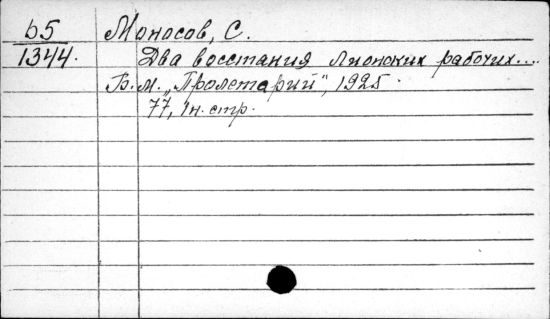 65
1344.
Моносов, С.
Два восстания лионских рабочих....
Б. М. „Пролетарий", 1925.
77, 1н. стр.